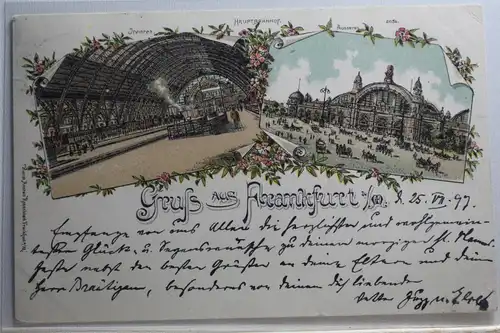 Inneres
HAUPTBAHNHOF.
Äusseres
Gruß aus Frankfurt a/M. d. 25. VII. 97.
Empfange von uns Allen die herzlichsten und wohlgemein-
testen Glück- u. Segenswünsche zu deinem morgigen Namens-
feste nebst den besten Grüßen an deine Eltern und deinen
Herrn Bräutigam, besonders von deinen dich liebenden